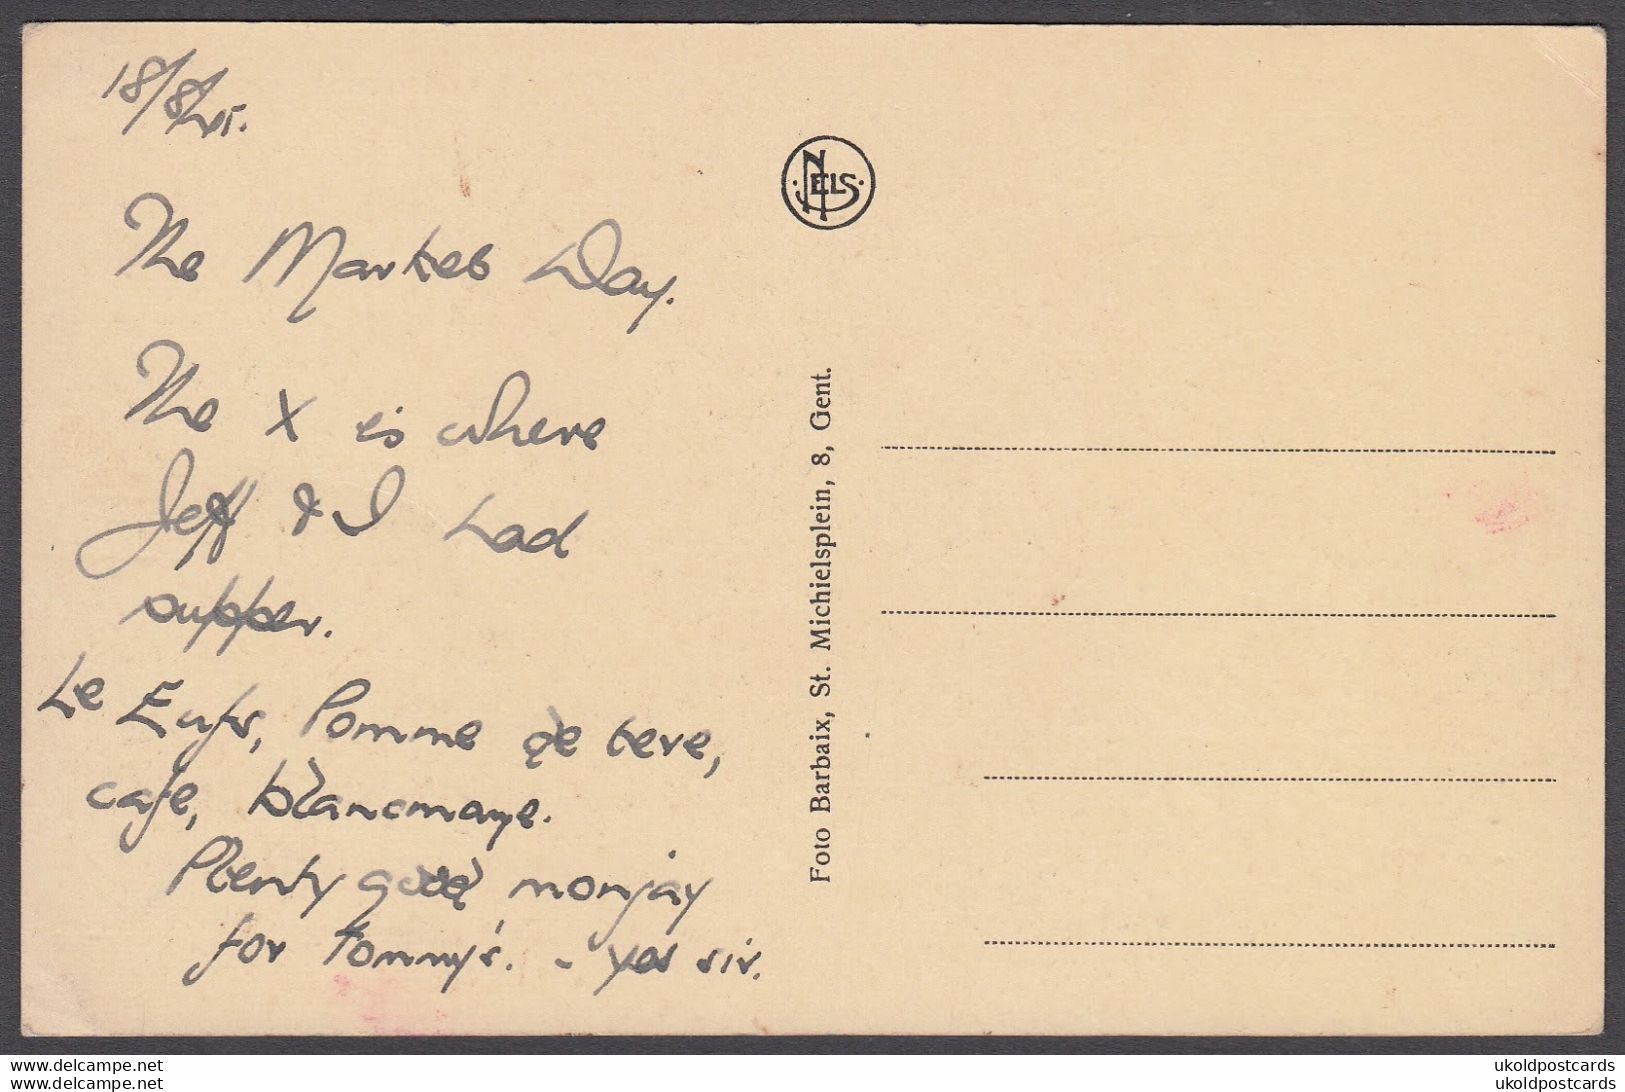 18/8/45.
The Market Day.
The X is where
Jeff & I had
supper.
Le Eufs, Pomme de tere,
cafe, blancmaye.
Plenty good monjay
for Tommy's. - yes sir.
NELS
Foto Barbaix, St. Michielsplein, 8, Gent.
delcampe.net
delcampe.net
ukoldpostcards
ukoldpostcards